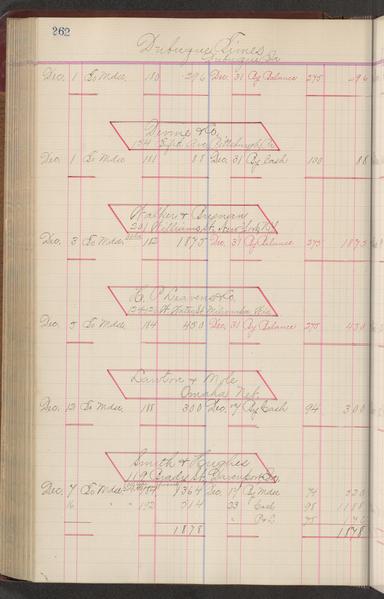 262
Dubuque Times
Dubuque Ia
Dec. 1 To Mdse. 180 296 Dec. 31 By Balance 275 296
Divine & Co.
Ave Pittsburgh Pa
Dec. 1 To Mdse 181 88 Dec. 31 By Cash 100 88
Walker &
231 William St. New York N.Y.
Dec. 3 To Mdse 182 1875 Dec. 31 By Balance 275 1875
H. P. & Co.
W. Water St Milwaukee Wis
Dec. 5 To Mdse 184 450 Dec. 31 By Balance 275 450
Lawton & Mole
Omaha Neb.
Dec. 12 To Mdse. 188 300 Dec. 17 By Cash 94 300
Smith & Hughes
119 Brady St. Davenport Ia
Dec. 7 To Mdse 184 1364 Dec. 17 By Mdse 74
16 " " 192 514 23 Cash 98
" P & L 75
1878 1878